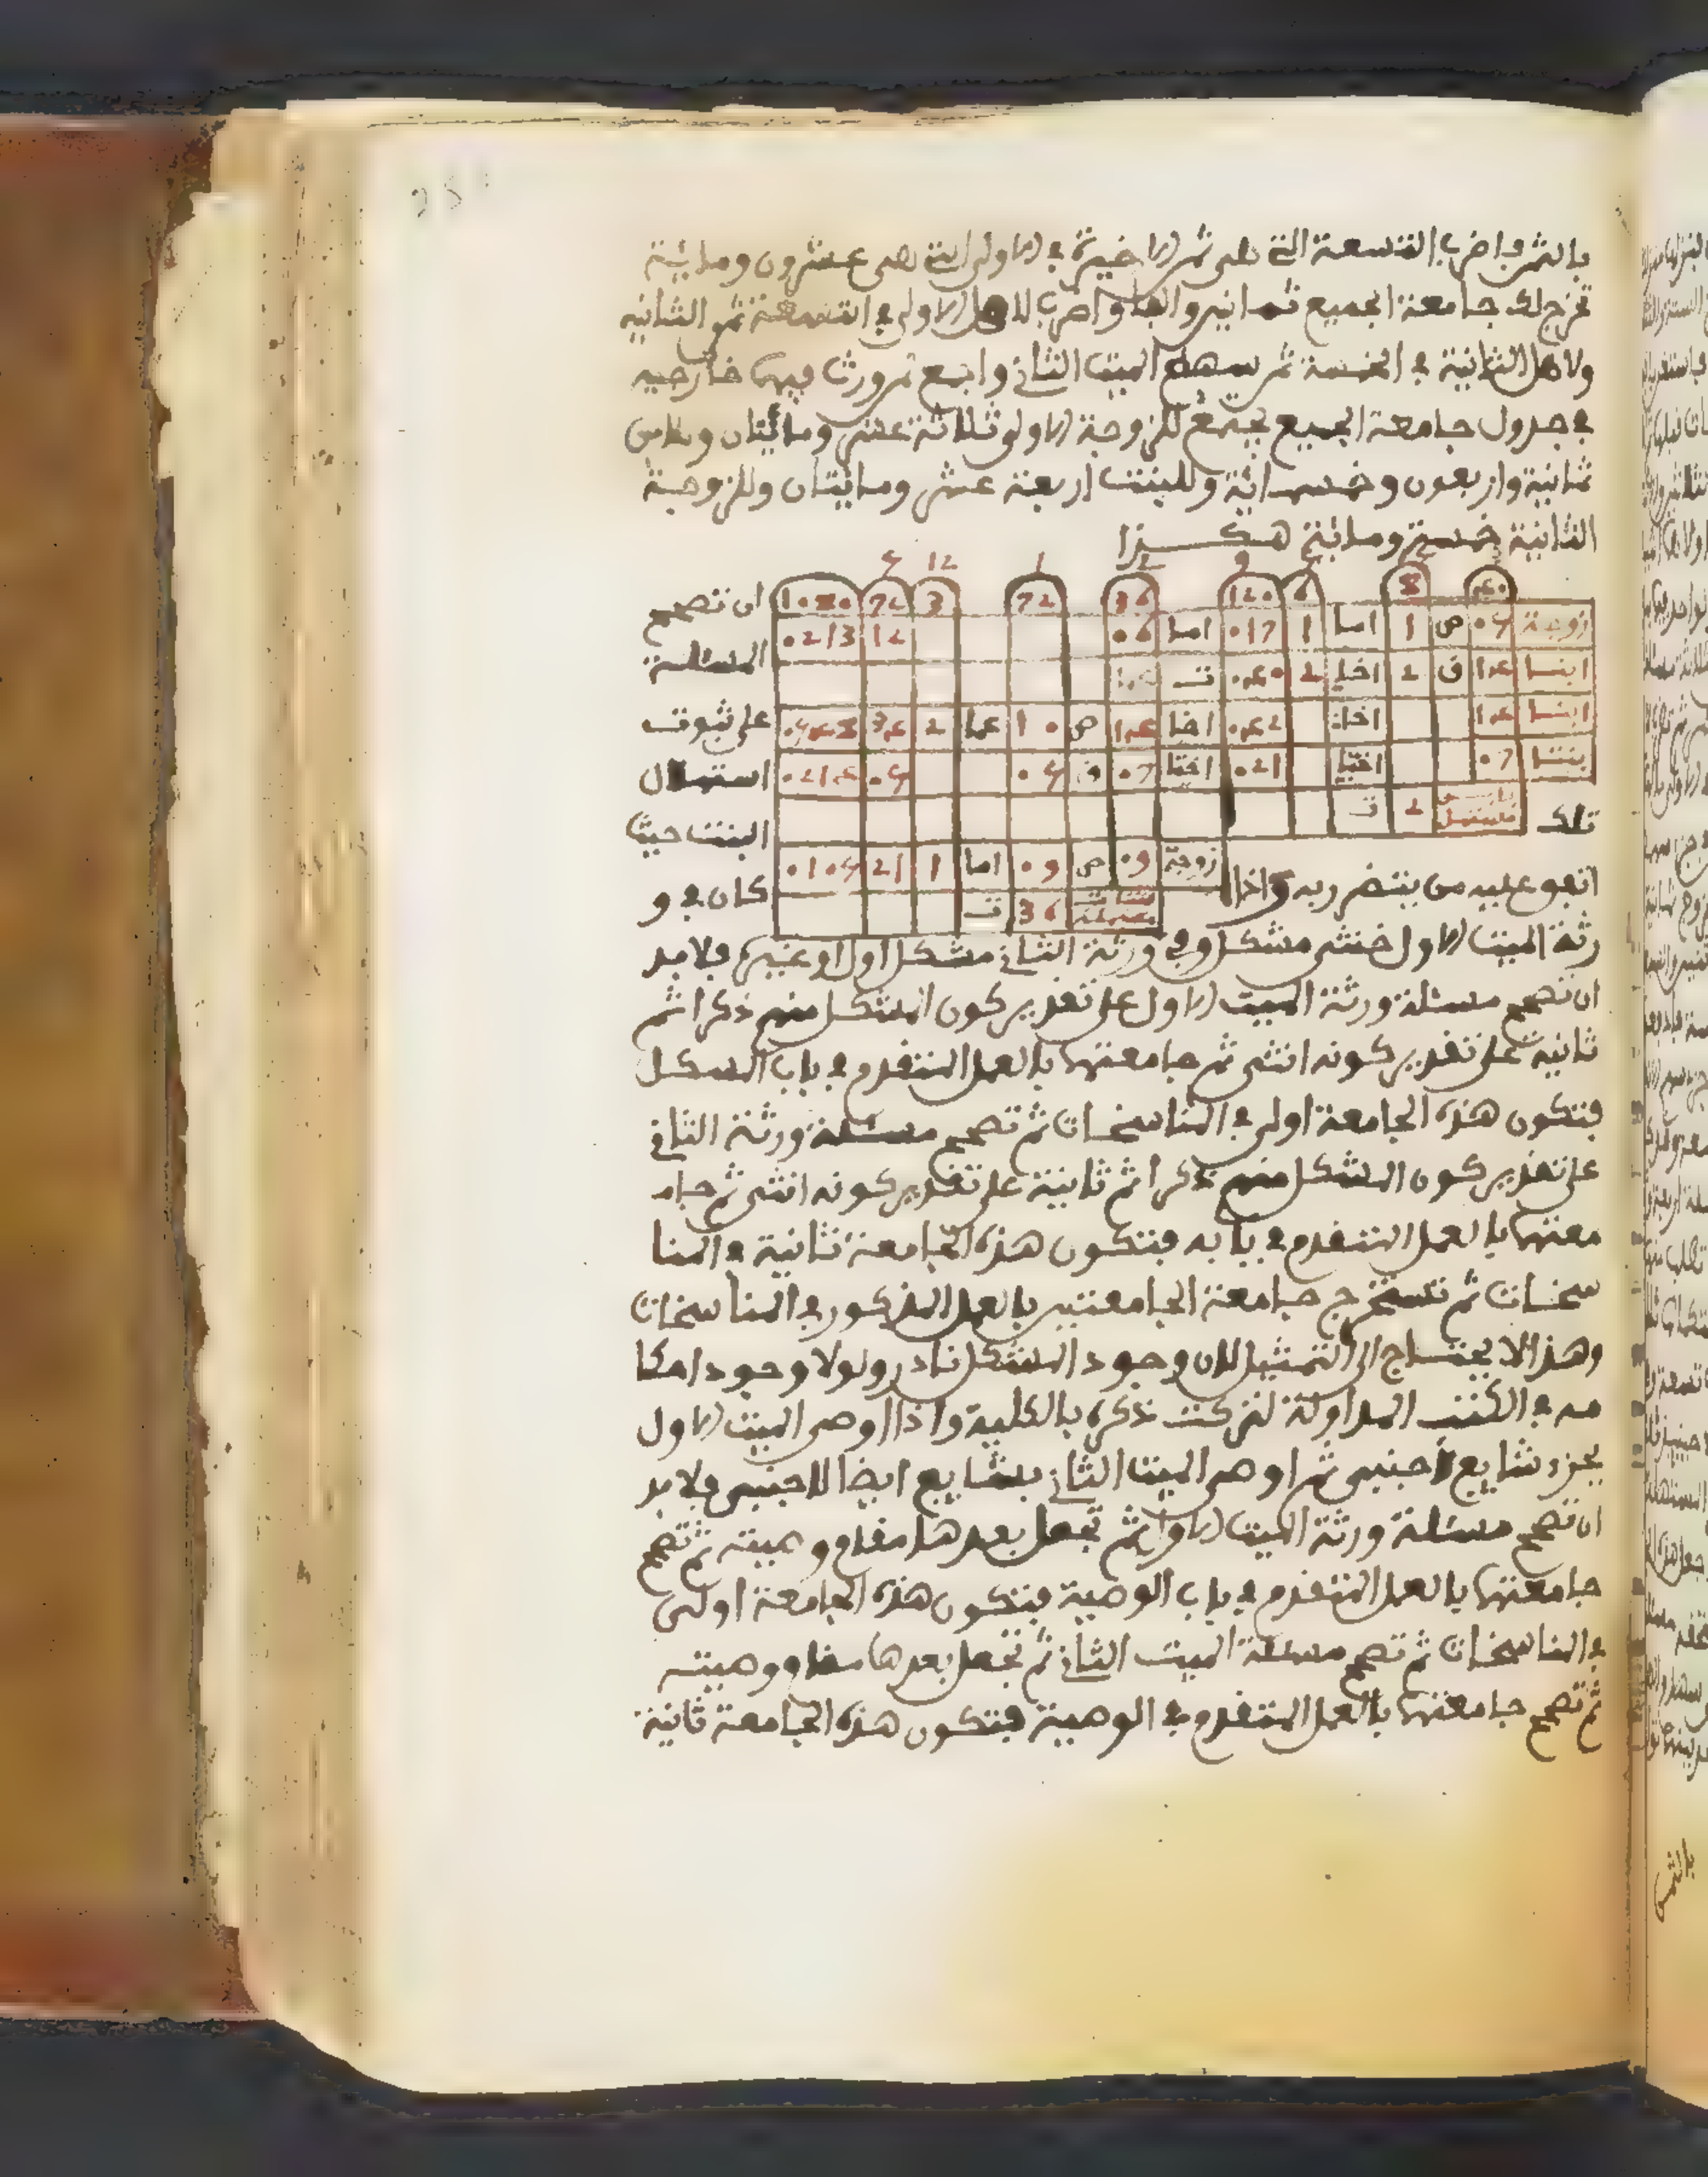 بالثمن واضرب التسعة التي هي ثمن الاخيرة في الاولى التي هي عشرون ومائية
تخرج لك جامعة الجميع ثمانين والفا واضرب لاهل الاولى في التسعة ثمن الثانية
ولاهل الثانية في الخمسة ثمن سهام الميت الثاني واجمع لمن ورث فيهما خارجيه
في جدول جامعة الجميع يجتمع للزوجة الاولى ثلاثة عشر ومائتان وللابن
ثمانية واربعون وخمسمائة وللبنت اربعة عشر ومائتان وللزوجة
الثانية خمسة ومائة هكذا
5 12 1 2 9
1080 72 3 72 36 120 6 8 40
زوجة 05 ص 1 اما 1 017 اما 06 12 0213
ابنا 14 ف 2 اخا 2 040 ت
ابنا 14 اخا 042 اخا 14 ص 10 عما 2 34 0548
بنتا 07 اختا 021 اختا 07 ف 05 05 0214
2 ت
زوجة 09 ص 09 اما 1 21 0105
36 ت
ان تصحح
المسئلة
على ثبوت
استهلال
تلك البنت حيث
اتفق عليه من يتضرر به واذا كان في و
رثة الميت الاول خنثى مشكل وفي ورثة الثاني مشكل اول او غيره فلا بد
ان تصحح مسئلة ورثة الميت الاول على تقدير كون المشكل منهم ذكرا ثم
ثانية على تقدير كونه انثى ثم جامعتهما بالعمل المتقدم في باب المشكل
فتكون هذه الجامعة اولى في المناسخات ثم تصحح مسئلة ورثة الثاني
على تقدير كون المشكل منهم ذكرا ثم ثانية على تقدير كونه انثى ثم جام
معتهما بالعمل المتقدم في بابه فتكون هذه الجامعة ثانية في المنا
سخات ثم تستخرج جامعة الجامعتين بالعمل المذكور في المناسخات
وهذا لا يحتاج الى التمثيل لان وجود المشكل نادر ولولا وجود احكا
مه في الكتب المداولة لتركت ذكره بالكلية واذا اوصى الميت الاول
بجزء شايع لاجنبي ثم اوصى الميت الثاني بشايع ايضا لاجنبي فلا بد
ان تصحح مسئلة ورثة الميت الاول ثم تجعل بعدها مقام وصيته ثم تصحح
جامعتهما بالعمل المتقدم في باب الوصية فتكون هذه الجامعة اولى
في المناسخات ثم تصحح مسئلة الميت الثاني ثم تجعل بعدها مقام وصيته
ثم تصحح جامعتهما بالعمل المتقدم في الوصية فتكون هذه الجامعة ثانية